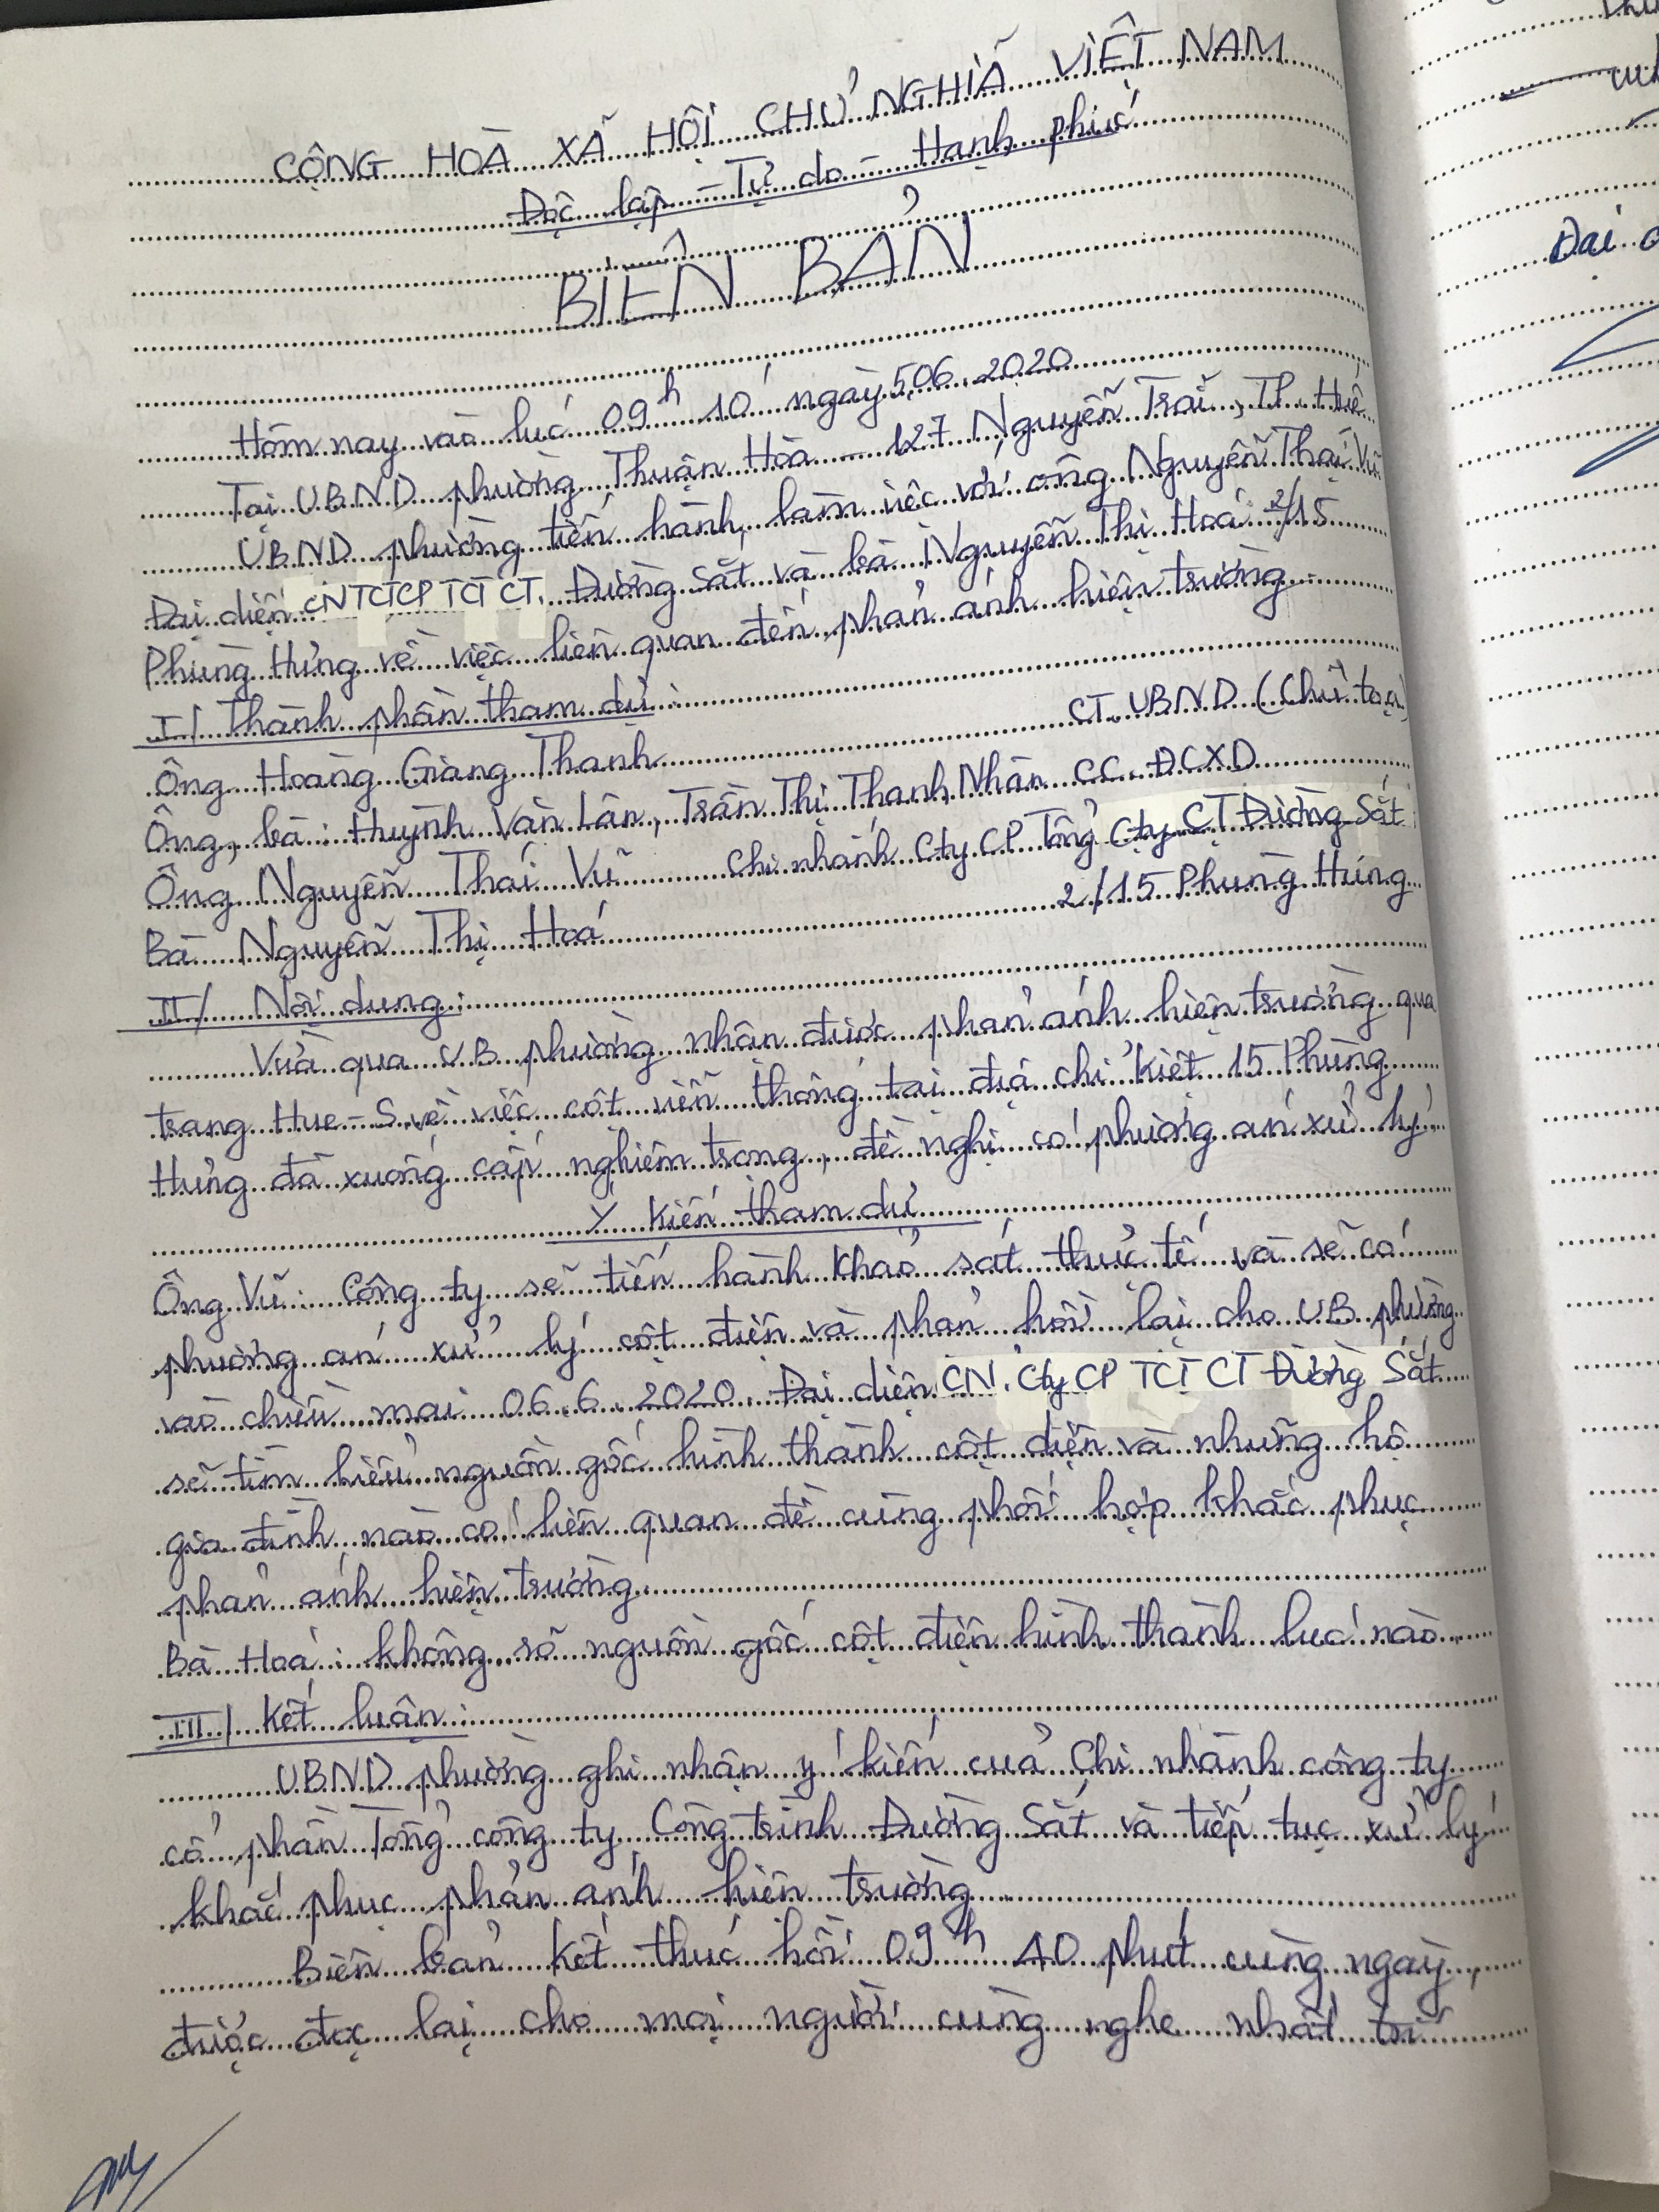 CỘNG HOÀ XÃ HỘI CHỦ NGHĨA VIỆT NAM
Độc lập - Tự do - Hạnh phúc
BIÊN BẢN
Hôm nay vào lúc 09h 10' ngày 5.06.2020
Tại UBND phường Thuận Hòa - 127 Nguyễn Trãi, TP Huế
UBND phường tiến hành làm việc với ông Nguyễn Thái Vũ
Đại diện CNTCTCP TCT CT. Đường Sắt và bà Nguyễn Thị Hoá 2/15
Phùng Hưng về việc liên quan đến phản ánh hiện trường
I/ Thành phần tham dự:
Ông Hoàng Giang Thanh CT. UBND (Chủ tọa)
Ông, bà: Huỳnh Văn Lân, Trần Thị Thanh Nhàn CC. ĐCXD
Ông Nguyễn Thái Vũ Chi nhánh Cty CP Tổng Cty CT Đường Sắt
Bà Nguyễn Thị Hoá 2/15 Phùng Hưng
II/ Nội dung:
Vừa qua UB phường nhận được phản ánh hiện trường qua
trang Hue-S về việc cột viễn thông tại địa chỉ kiệt 15 Phùng
Hưng đã xuống cấp nghiêm trọng, đề nghị có phương án xử lý.
Ý kiến tham dự
Ông Vũ: Công ty sẽ tiến hành khảo sát thực tế và sẽ có
phương án xử lý cột điện và phản hồi lại cho UB phường
vào chiều mai 06.6.2020. Đại diện CN. Cty CP TCT CT Đường Sắt
sẽ tìm hiểu nguồn gốc hình thành cột điện và những hộ
gia đình nào có liên quan để cùng phối hợp khắc phục
phản ánh hiện trường.
Bà Hoá: không rõ nguồn gốc cột điện hình thành lúc nào.
III/ Kết luận:
UBND phường ghi nhận ý kiến của Chi nhánh công ty
cổ phần Tổng công ty Công trình Đường Sắt và tiếp tục xử lý
khắc phục phản ánh hiện trường
Biên bản kết thúc hồi 09h 40 phút cùng ngày,
được đọc lại cho mọi người cùng nghe nhất trí
Đại